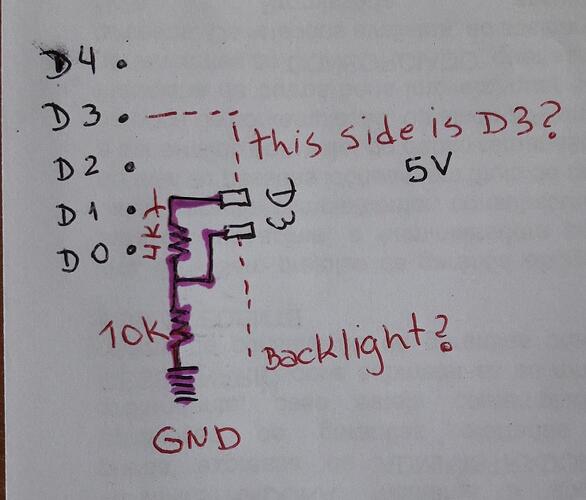 D4
D3
this side is D3?
5V
D2
D1
D0
4K7
D3
10K
Backlight?
GND